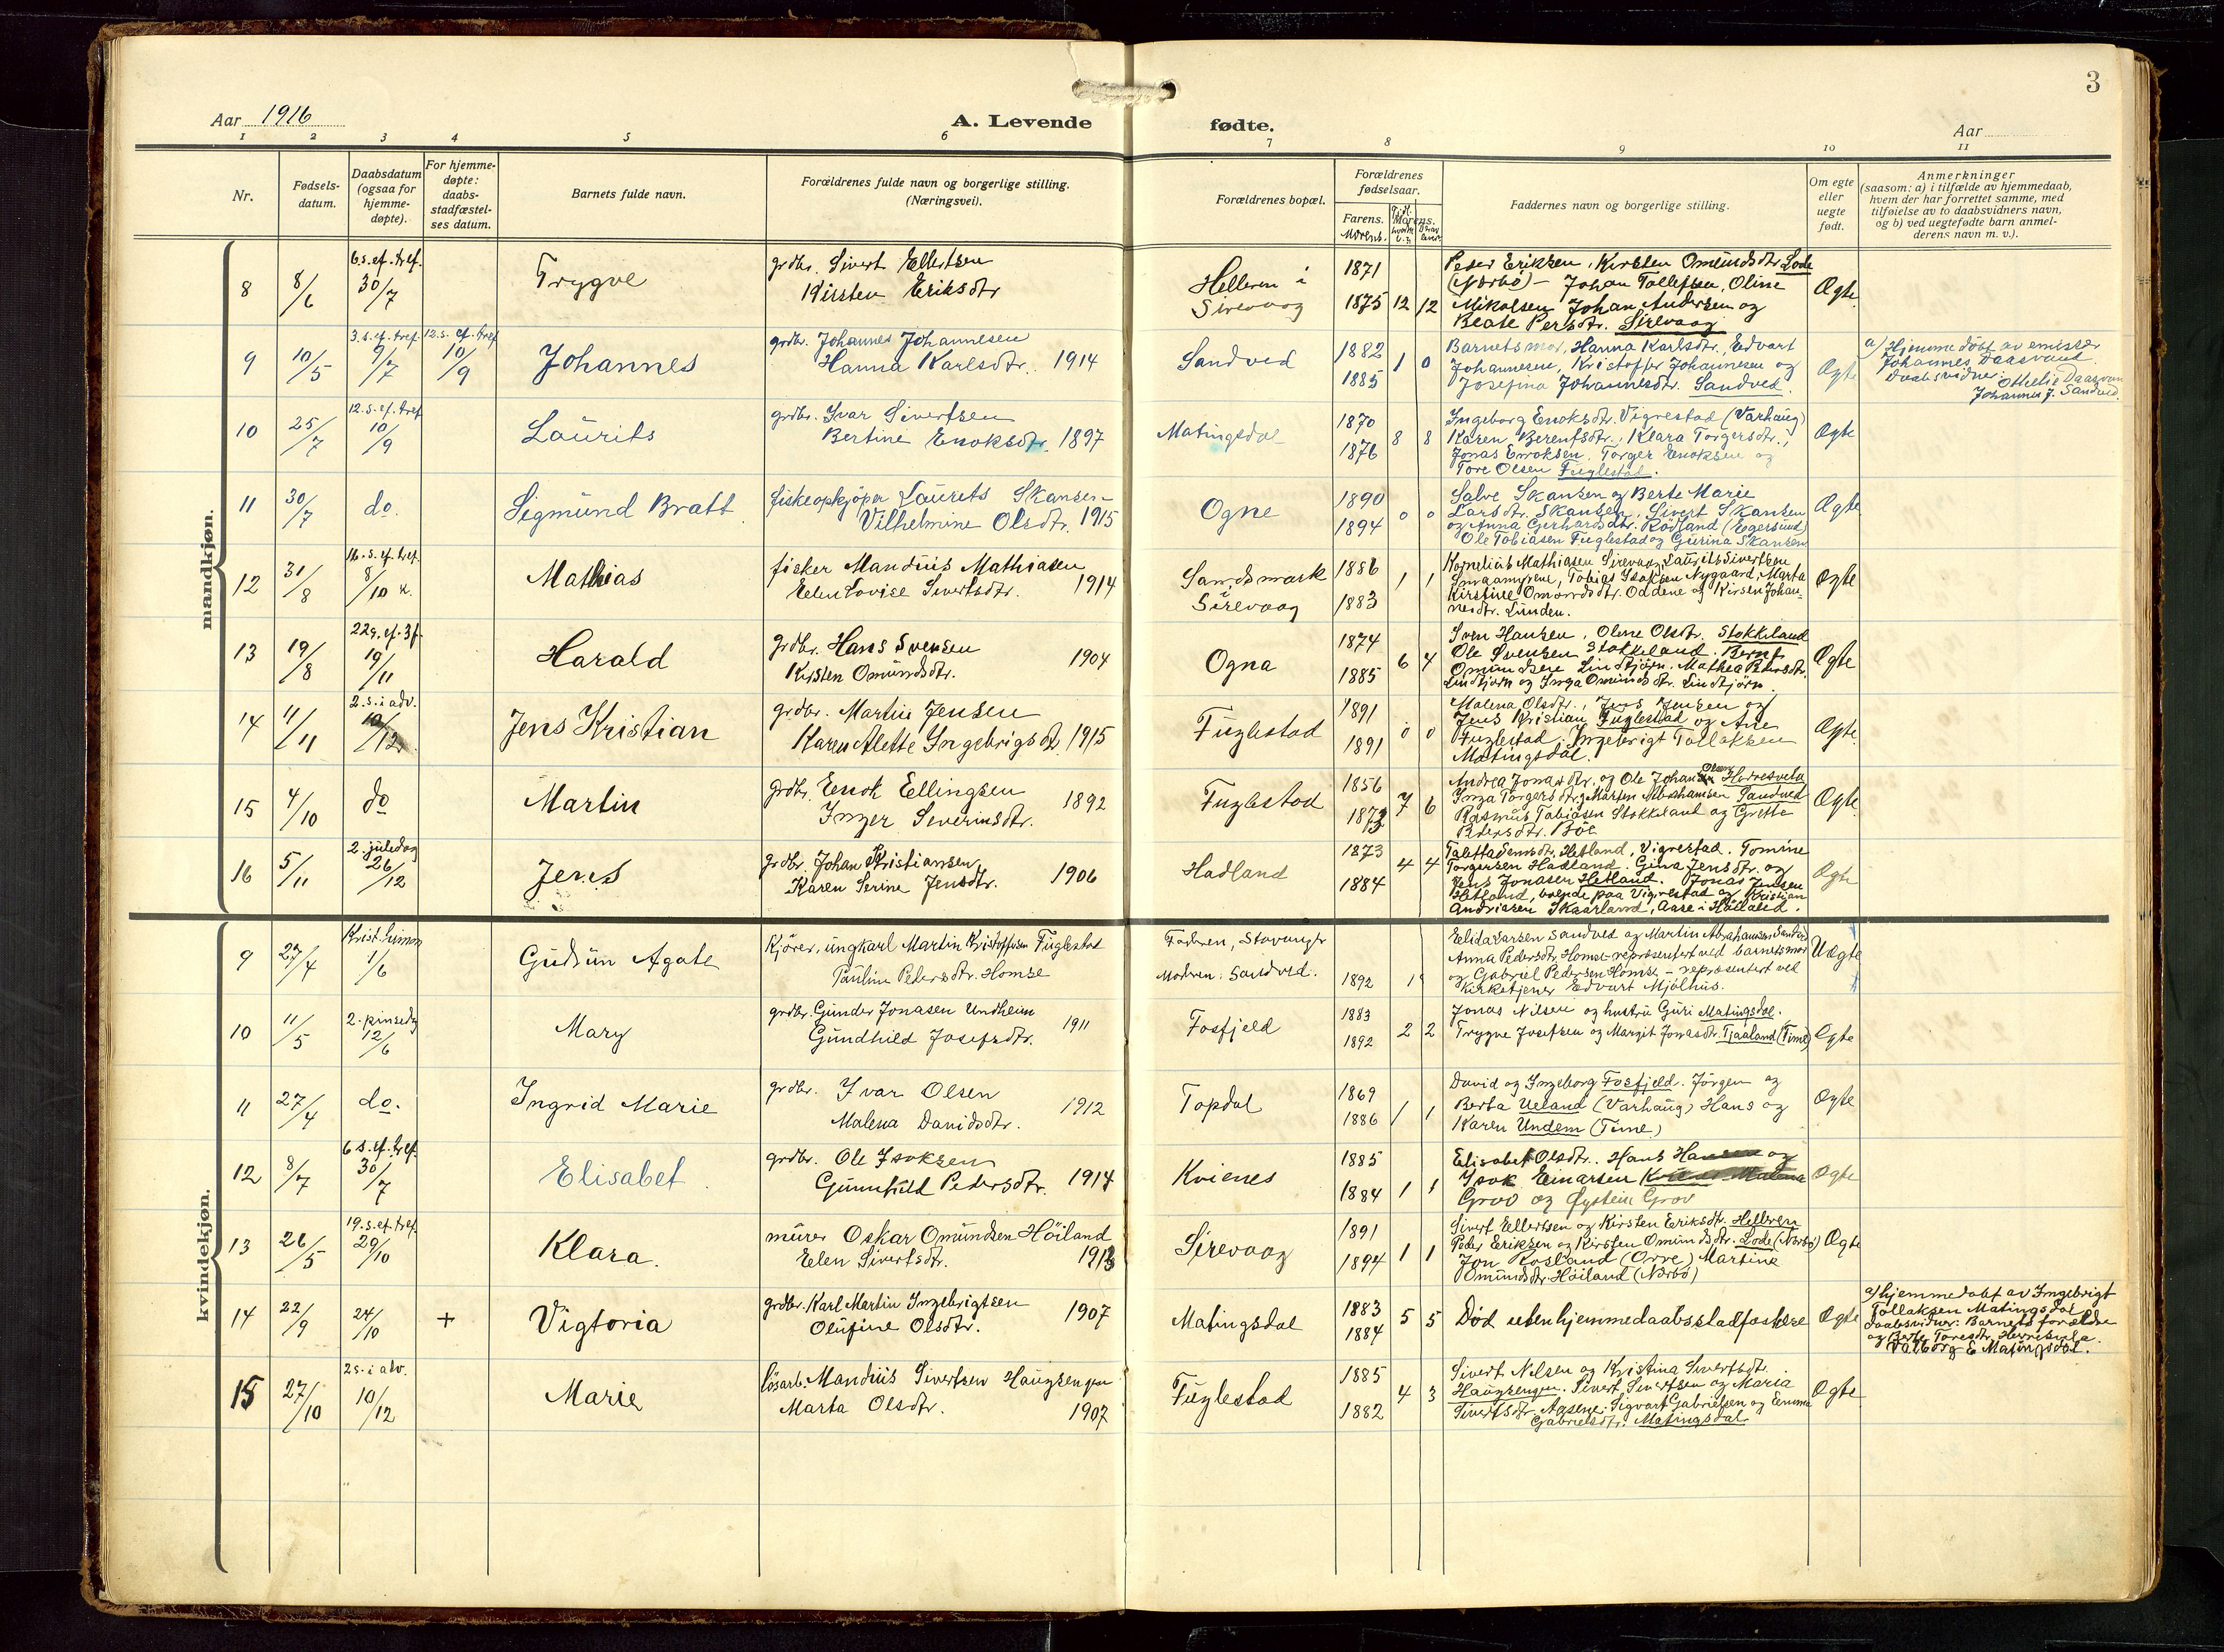 3
Aar 1916
A. Levende fødte.
Aar
1 2 3 4 5 6 7 8 9 10 11
Nr.
Fødsels-
datum.
Daabsdatum
(ogsaa for
hjemme-
døpte).
For hjemme-
døpte:
daabs-
stadfæstel-
ses datum.
Barnets fulde navn.
Forældrenes fulde navn og borgerlige stilling.
(Næringsvei).
Forældrenes bopæl.
Forældrenes
fødselsaar.
Farens.
Morens.
Morens.
Faddernes navn og borgerlige stilling.
Om egte
eller
uegte
født.
Anmerkninger
(saasom: a) i tilfælde av hjemmedaab,
hvem der har forrettet samme, med
tilføielse av to daabsvidners navn,
og b) ved uegtefødte barn anmel-
derens navn m. v.).
mandkjøn.
8
8/6
6.s.ef.tref.
30/7
Trygve
grdbr. Sivert Ellertsen
Kirsten Eriksdtr
Helleren i
Sirevaag
1871
1875 12 12
Peder Eriksen, Kirsten Omundsdtr Lode
(Nærbø) - Johan Tollefsen, Oline
Mikalsen Johan Andersen og
Beate Persdtr. Sirevaag
Ægte
9
10/5
3.s.ef.tref.
9/7
12.s.ef.tref
10/9
Johannes
grdbr. Johannes Johannesen
Hanna Karlsdtr. 1914
Sandved
1882
1885
1 0
Barnets mor, Hanna Karlsdtr., Edvart
Johannesen, Kristoffer Johannesen og
Josefina Johannesdtr. Sandved.
Ægte
a) Hjemmedøbt av emissær
Johannes Daasvand
Daabsvidner:
Othelie Daasvan
Johannes J. Sandved.
10
25/7
12.s.ef.tref
10/9
Laurits
grdbr. Ivar Sivertsen
Bertine Enoksdtr. 1897
Matingsdal
1870
1876
8 8
Ingeborg Enoksdtr. Vigrestad (Varhaug)
Karen Berentsdtr., Klara Torgersdtr.,
Jonas Enoksen, Torger Enoksen og
Tore Olsen Fuglestad.
Ægte
11
30/7
do.
Sigmund Bratt
fiskeopkjøper Laurits Skansen
Vilhelmine Olsdtr. 1915
Ogne
1890
1894
0 0
Salve Skansen og Berte Marie
Larsdtr. Skansen, Sivert Skansen
og Anna Gerhardsdtr. Rødland (Egersund)
Ole Tobiasen Fuglestad og Gurina Skansen
Ægte
12
31/8
16.s.ef.tref.
8/10 k.
Mathias
fisker Mandius Mathiasen
Eelen Lovise Sivertsdtr. 1914
Sandsmark
i Sirevaag
1886
1883
1 1
Kornelius Mathiasen Sirevaag, Laurits Sivertsen
Smaamyrene, Tobias Isaksen Nygaard, Marta
Kirstine Omundsdtr. Oddene og Kirsen Johan-
nesdtr. Lunden.
Ægte
13
19/8
22s.ef.3f.
19/11
Harald
grdbr. Hans Svensen
Kirsten Omundsdtr. 1904
Ogna
1874
1885
6 4
Sven Hansen, Oline Olsdtr. Stokkeland
Ole Svensen Stokkeland. Bernt
Omundsen Lindtjørn. Mathea Pedersdtr.
Lindtjørn og Inga Omundsdtr. Lindtjørn.
Ægte
14
11/11
2.s.i adv.
10/12
Jens Kristian
grdbr. Martin Jensen
Karen Alette Ingebrigsdt. 1915
Fuglestad
1891
1891
0 0
Malena Olsdtr., Jens Jensen og
Jens Kristian Fuglestad og Ane
Fuglestad. Ingebrigt Tollaksen
Matingsdal.
Ægte
15
4/10
do
Martin
grdbr. Enok Eellingsen
Inger Severinsdtr. 1892
Fuglestad
1856
1873
7 6
Andrea Jonasdtr. og Ole Johan Olsen Herresvela
Inga Torgersdtr. Martin Abrahamsen Sandved
Rasmus Tobiasen Stokkeland og Grette
Pedersdtr. Bøe
Ægte
16
5/11
2. juledag
26/12
Jens
grdbr. Johan Kristiansen
Karen Serine Jensdtr. 1906
Hadland
1873
1884
4 4
Talettadensdtr. Hetland, Vigrestad. Tomine
Torgersen Hadland. Gina Jensdtr. og
Jens Jonasen Hetland. Jonas Jensen
Hetland, boende paa Vigrestad og Kristian
Andriasen Skaarland, Aase i Helleland.
Ægte
kvindekjøn.
9
27/4
Krist.himm
1/6
Gudrun Agate
Kjører, ungkarl Martin Kristoffersen Fuglestad
Pauline Pedersdtr. Homse
Faderen, Stavanger
Moderen: Sandved.
1892
Anna Pedersdtr. Homse - repræsentert ved barnets mor
og Gabriel Pedersen Homse - repræsentert ved
Kirketjener Edvart Mjølhus.
Uægte
10
11/5
2. pinsedg
12/6
Mary
grdbr. Gunder Jonasen Undheim
Gundhild Josefsdtr. 1911
Fosfjeld
1883
1892
2 2
Jonas Nilsen og hustru Guri Matingsdal.
Trygve Josefsen og Margit Jonasdtr. Tjaaland (Time)
Ægte
11
27/4
do.
Ingrid Marie
grdbr. Ivar Olsen
Malena Davidsdtr. 1912
Topdal
1869
1886
1 1
David og Ingeborg Fosfjeld. Jørgen og
Berta Ueland (Varhaug) Hans og
Karen Undem (Time)
Ægte
12
8/7
6 s.ef.tref.
30/7
Elisabet
grdbr. Ole Isaksen
Gunnhild Pedersdtr. 1914
Kvienes
1885
1884
1 1
Elisabet Olsdtr. Hans Hansen og
Isak Einarsen
Grov og Øystein Grov
Ægte
13
26/5
19.s.ef.tref.
29/10
Klara.
murer Oskar Omundsen Høiland
Eelen Sivertsdtr. 1913
Sirevaag
1891
1894
1 1
Sivert Eellertsen og Kirsten Eriksdtr. Helleren
Peder Eriksen og Kirsten Omundsdtr. Lode (Nærbø)
Jon Rosland (Orre) Martine
Omundsdtr. Høiland (Nærbø)
Ægte
14
22/9
24/10
+
Vigtoria
grdbr. Karl Martin Ingebrigtsen
Olufine Olsdtr. 1907
Matingsdal
1883
1884
5 5
Død uten hjemmedaabsstadfæstelse
Ægte
a) hjemmedøbt av Ingebrigt
Tollaksen Matingsdal
Daabsvidner: Barnets forældre
og Berte Toresdtr. Herresvela.
Valborg E Matingsdal.
15
27/10
2s.i adv.
10/12
Marie
løsarb. Mandius Sivertsen Haugsengen
Marta Olsdtr. 1907
Fuglestad
1885
1882
4 3
Sivert Nilsen og Kristina Sivertsdtr.
Haugsengen. Sivert Sivertsen og Maria
Sivertsdtr. Aasene. Sigvart Gabrielsen og Eemma
Gabrielsdtr. Matingsdal
Ægte